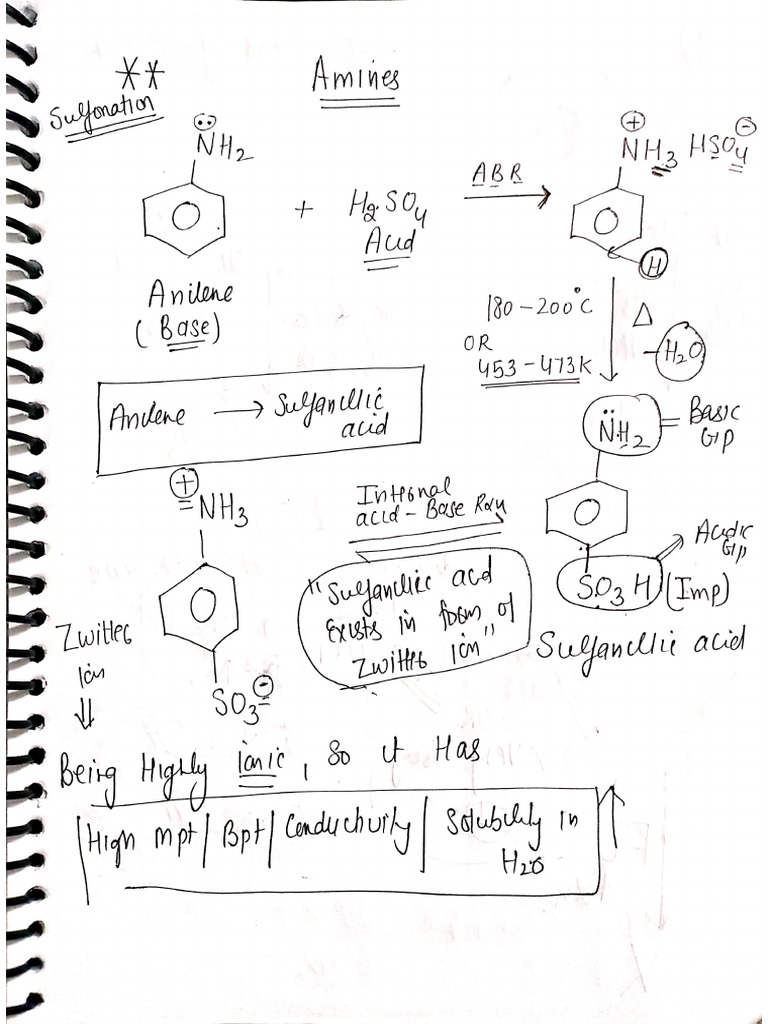 **
Amines
Sulfonation
N̈H2
+ H2SO4
Acid
ABR
⊕
NH3 HSO4 ⊖
H
Anilene
(Base)
180-200°C
OR
453-473K
Δ
-H2O
Anilene → Sulfanilic
acid
N̈H2 = Basic
Grp
⊕
NH3
Internal
acid-Base Rxn
Acidic
Grp
SO3H (Imp)
"Sulfanilic acid
exists in form of
Zwitter ion"
Sulfanilic acid
Zwitter
ion
⇓
SO3⊖
Being Highly ionic, so it Has
High mpt | Bpt | Conductivity | Solubility in
H2O ↑